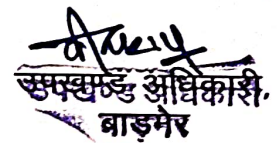 उपखण्ड अधिकारी.
बाड़मेर